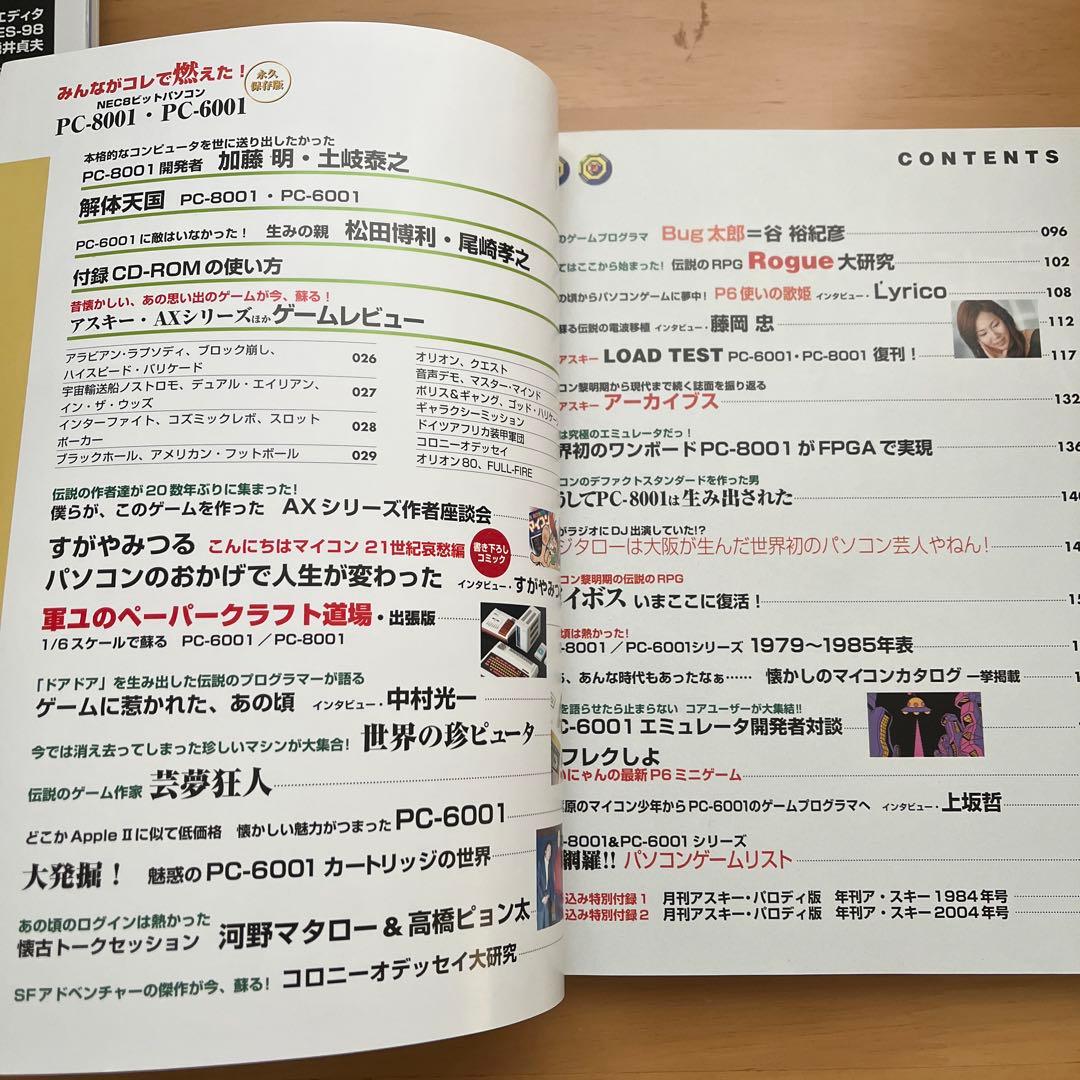 エディタ
ES-98
井貞夫
みんながコレで燃えた!
永久
保存版
NEC8ビットパソコン
PC-8001・PC-6001
本格的なコンピュータを世に送り出したかった
PC-8001開発者 加藤 明・土岐泰之
解体天国 PC-8001・PC-6001
PC-6001に敵はいなかった! 生みの親 松田博利・尾崎孝之
付録CD-ROMの使い方
昔懐かしい、あの思い出のゲームが今、蘇る!
アスキー・AXシリーズほかゲームレビュー
アラビアン・ラプソディ、ブロック崩し、
ハイスピード・バリケード 026
宇宙輸送船ノストロモ、デュアル・エイリアン、
イン・ザ・ウッズ 027
インターファイト、コズミックレボ、スロット
ポーカー 028
ブラックホール、アメリカン・フットボール 029
オリオン、クエスト
音声デモ、マスター・マインド
ポリス&ギャング、ゴッド・ハリケーン
ギャラクシーミッション
ドイツアフリカ装甲軍団
コロニーオデッセイ
オリオン80、FULL-FIRE
伝説の作者達が20数年ぶりに集まった!
僕らが、このゲームを作った AXシリーズ作者座談会
すがやみつる こんにちはマイコン 21世紀哀愁編
書き下ろし
コミック
パソコンのおかげで人生が変わった インタビュー・すがやみつ
軍ユのペーパークラフト道場・出張版
1/6スケールで蘇る PC-6001/PC-8001
「ドアドア」を生み出した伝説のプログラマーが語る
ゲームに惹かれた、あの頃 インタビュー・中村光一
今では消え去ってしまった珍しいマシンが大集合! 世界の珍ピュータ
伝説のゲーム作家 芸夢狂人
どこかApple IIに似て低価格 懐かしい魅力がつまったPC-6001
大発掘! 魅惑のPC-6001 カートリッジの世界
あの頃のログインは熱かった
懐古トークセッション 河野マタロー&高橋ピョン太
SFアドベンチャーの傑作が今、蘇る! コロニーオデッセイ大研究
CONTENTS
のゲームプログラマ Bug太郎=谷 裕紀彦 096
てはここから始まった! 伝説のRPG Rogue大研究 102
の頃からパソコンゲームに夢中! P6使いの歌姫 インタビュー・Lyrico 108
蘇る伝説の電波移植 インタビュー・藤岡 忠 112
アスキー LOAD TEST PC-6001・PC-8001 復刊! 117
コン黎明期から現代まで続く誌面を振り返る
アスキー アーカイブス 132
は究極のエミュレータだっ!
界初のワンボードPC-8001がFPGAで実現 136
コンのデファクトスタンダードを作った男
うしてPC-8001は生み出された 140
がラジオにDJ出演していた!?
ジタローは大阪が生んだ世界初のパソコン芸人やねん! 14
コン黎明期の伝説のRPG
イボス いまここに復活! 15
頃は熱かった!
-8001/PC-6001シリーズ 1979〜1985年表 1
ら、あんな時代もあったなぁ…… 懐かしのマイコンカタログ 一挙掲載 1
を語らせたら止まらない コアユーザーが大集結!!
C-6001エミュレータ開発者対談
フレクしよ
いにゃんの最新P6ミニゲーム
原のマイコン少年からPC-6001のゲームプログラマへ インタビュー・上坂哲
-8001&PC-6001 シリーズ
網羅!! パソコンゲームリスト
込み特別付録1 月刊アスキー・パロディ版 年刊ア・スキー1984年号
込み特別付録2 月刊アスキー・パロディ版 年刊ア・スキー2004年号